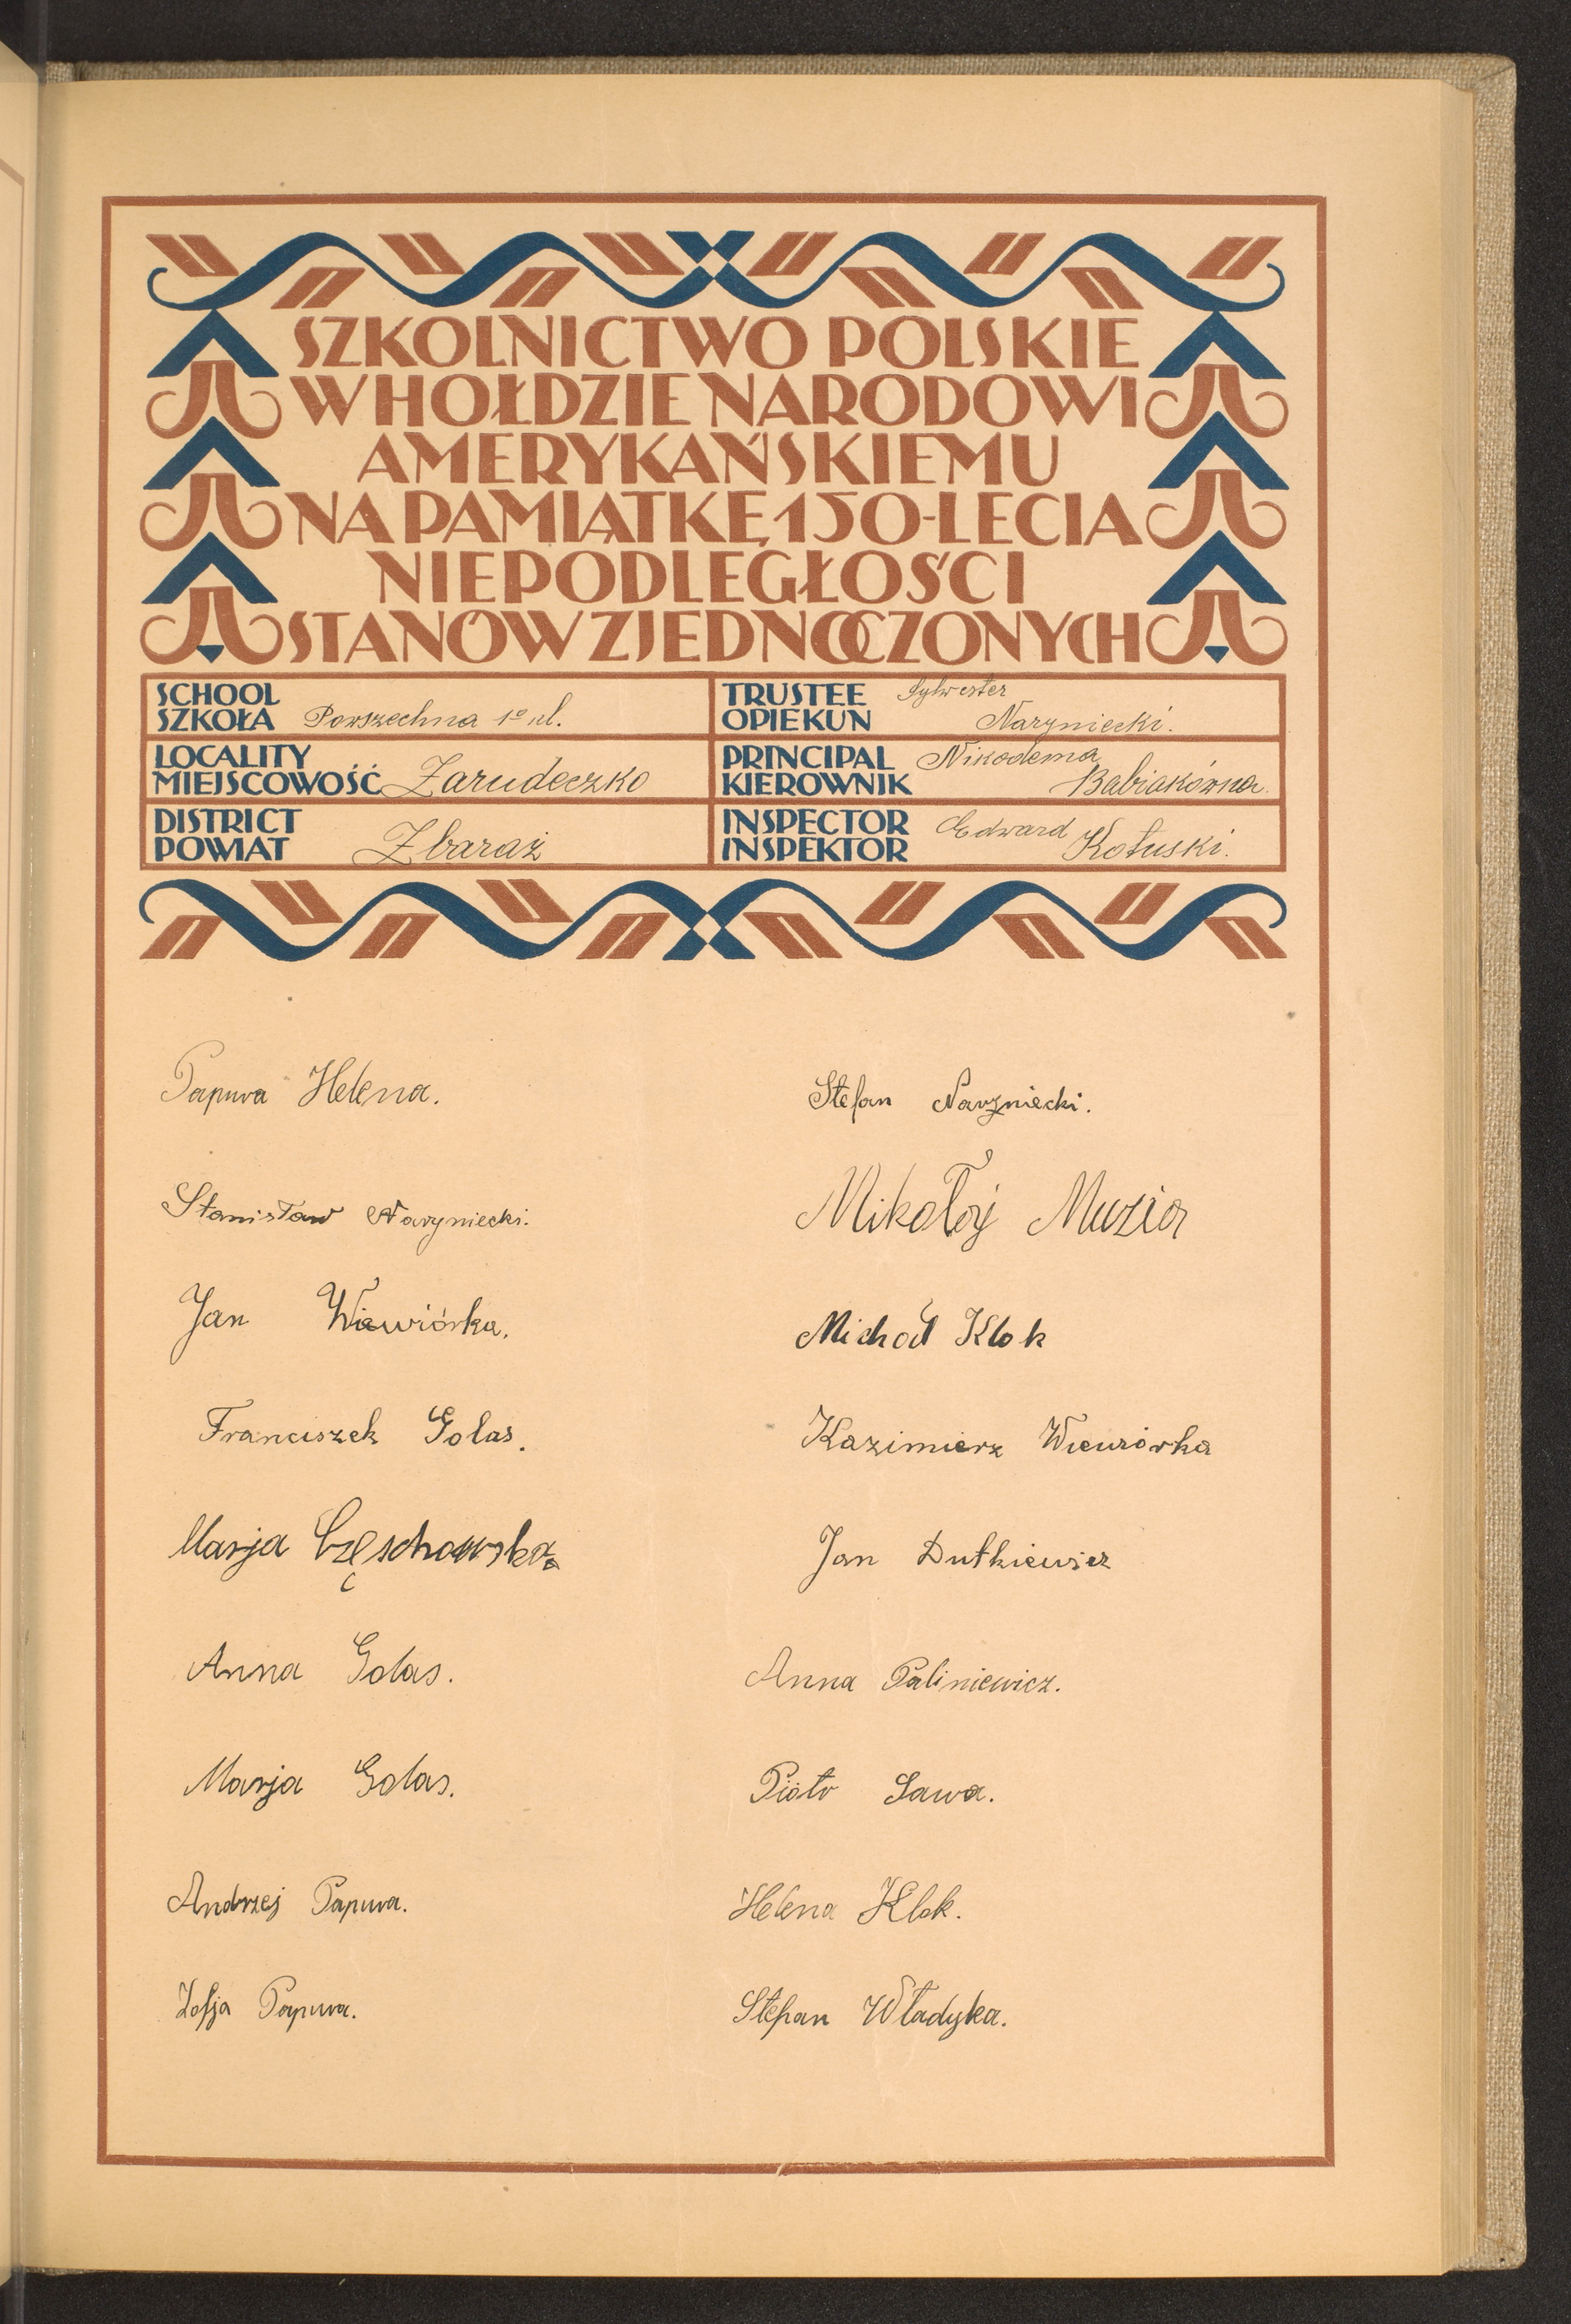 SZKOLNICTWO POLSKIE
W HOŁDZIE NARODOWI
AMERYKAŃSKIEMU
NA PAMIĄTKĘ 150-LECIA
NIEPODLEGŁOŚCI
STANÓW ZJEDNOCZONYCH
SCHOOL
SZKOŁA Powszechna 1º kl.
TRUSTEE
OPIEKUN Sylwester
Naryniecki.
LOCALITY
MIEJSCOWOŚĆ Zarudeczko
PRINCIPAL
KIEROWNIK Nikodema
Babiakówna.
DISTRICT
POWIAT Zbaraż
INSPECTOR
INSPEKTOR Edward
Kotuski.
Papuva Helena.
Stanisław Naryniecki.
Jan Wiewiórka.
Franciszek Golas.
Marja Częschowska.
Anna Golas.
Marja Golas.
Andrzej Papuva.
Zofja Papuva.
Stefan Naryniecki.
Mikołaj Muzia
Michał Klok
Kazimierz Wiewiórka
Jan Dutkiewicz
Anna Paliniewicz.
Piotr Sawa.
Helena Klok.
Stefan Władyka.